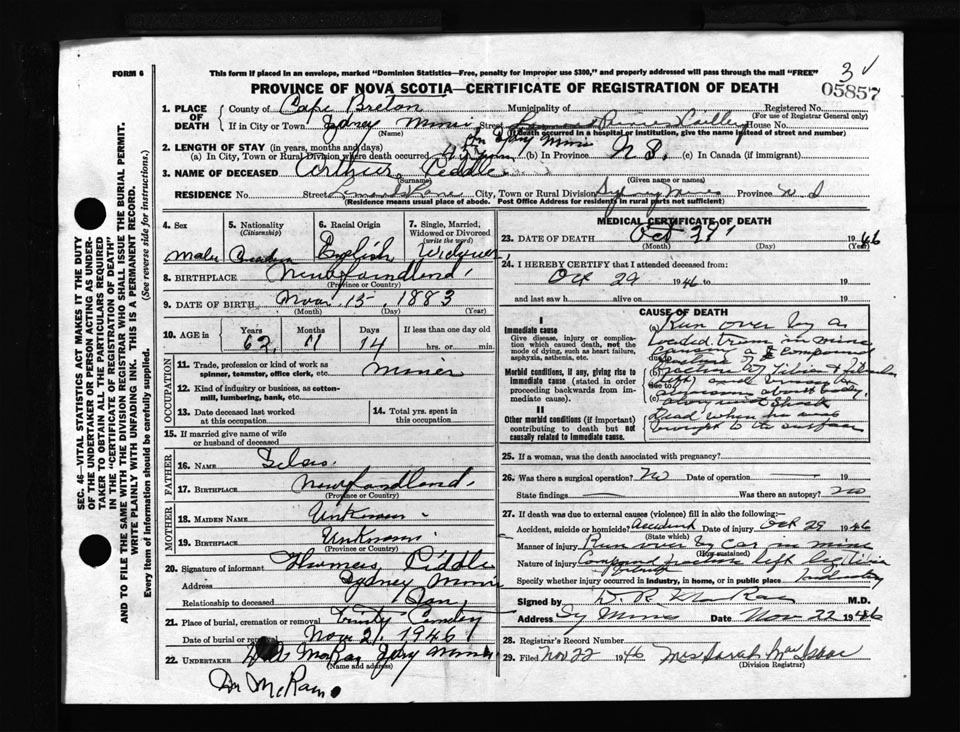 FORM 6
This form if placed in an envelope, marked "Dominion Statistics—Free, penalty for improper use $300," and properly addressed will pass through the mail "FREE"
3
PROVINCE OF NOVA SCOTIA—CERTIFICATE OF REGISTRATION OF DEATH
05857
1. PLACE OF DEATH
County of Cape Breton Municipality of Registered No.
(For use of Registrar General only)
If in City or Town Sydney Mines Street House No.
(Name) (If death occurred in a hospital or institution, give the name instead of street and number)
2. LENGTH OF STAY (in years, months and days)
(a) In City, Town or Rural Division where death occurred (b) In Province N.S. (c) In Canada (if immigrant)
3. NAME OF DECEASED Arthur Piddle
(Surname) (Given name or names)
RESIDENCE No. Street City, Town or Rural Division Sydney Mines Province N S
(Residence means usual place of abode. Post Office Address for residents in rural parts not sufficient)
4. Sex 5. Nationality (Citizenship) 6. Racial Origin 7. Single, Married, Widowed or Divorced (write the word)
Male Canadian English Widower
8. BIRTHPLACE Newfoundland
(Province or Country)
9. DATE OF BIRTH Nov. 15, 1883
(Month) (Day) (Year)
10. AGE in Years Months Days If less than one day old
62 11 14 hrs. or min.
OCCUPATION
11. Trade, profession or kind of work as spinner, teamster, office clerk, etc. Miner
12. Kind of industry or business, as cotton-mill, lumbering, bank, etc.
13. Date deceased last worked at this occupation
14. Total yrs. spent in this occupation
15. If married give name of wife or husband of deceased
FATHER
16. NAME
17. BIRTHPLACE Newfoundland
(Province or Country)
MOTHER
18. MAIDEN NAME Unknown
19. BIRTHPLACE Unknown
(Province or Country)
20. Signature of informant Thomas Piddle
Address Sydney Mines
Relationship to deceased Son
21. Place of burial, cremation or removal Trinity
Date of burial or removal Nov 2, 1946
22. UNDERTAKER
(Name and address)
MEDICAL CERTIFICATE OF DEATH
23. DATE OF DEATH Oct 29 1946
(Month) (Day) (Year)
24. I HEREBY CERTIFY that I attended deceased from:
Oct 29 1946 to 19
and last saw h alive on 19
CAUSE OF DEATH
I
Immediate cause
Give disease, injury or complication which caused death, not the mode of dying, such as heart failure, asphyxia, asthenia, etc.
Morbid conditions, if any, giving rise to immediate cause (stated in order proceeding backwards from immediate).
II
Other morbid conditions (if important) contributing to death but not causally related to immediate cause.
(a) Run over by a
loaded train in mine
due to
compound
(b) fracture of Tibia & Fibula
due to
(c)
Shock
Dead when he was
brought to the surface
25. If a woman, was the death associated with pregnancy?
26. Was there a surgical operation? No Date of operation 19
State findings Was there an autopsy? No
27. If death was due to external causes (violence) fill in also the following:
Accident, suicide or homicide? Accident Date of injury Oct 29 1946
(State which)
Manner of injury Run over by car in mine
(How sustained)
Nature of injury Compound fracture left leg Tibia
Specify whether injury occurred in industry, in home, or in public place Industry
Signed by M.D.
Address Sy Mines Date Nov 22 1946
28. Registrar's Record Number
29. Filed Nov 22 1946 Mrs Sarah MacIsaac
(Division Registrar)
SEC. 46—VITAL STATISTICS ACT MAKES IT THE DUTY
OF THE UNDERTAKER OR PERSON ACTING AS UNDER-
TAKER TO OBTAIN ALL THE PARTICULARS REQUIRED
IN THE "CERTIFICATE OF REGISTRATION OF DEATH"
AND TO FILE THE SAME WITH THE DIVISION REGISTRAR WHO SHALL ISSUE THE BURIAL PERMIT.
WRITE PLAINLY WITH UNFADING INK. THIS IS A PERMANENT RECORD.
Every item of information should be carefully supplied. (See reverse side for instructions.)